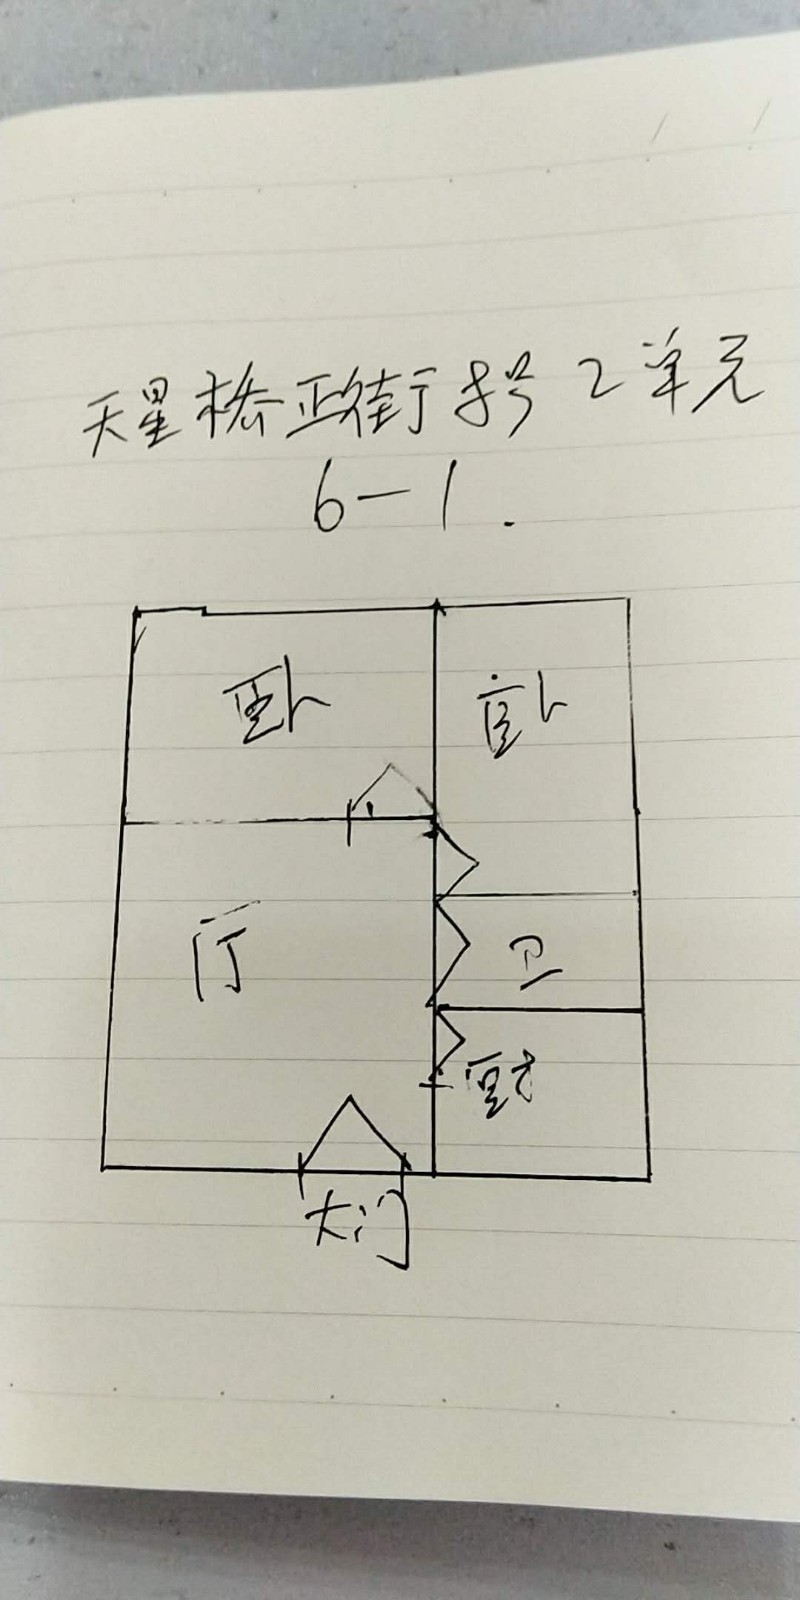 天星桥正街8号2单元
6-1.
卧
卧
厅
卫
厨
大门